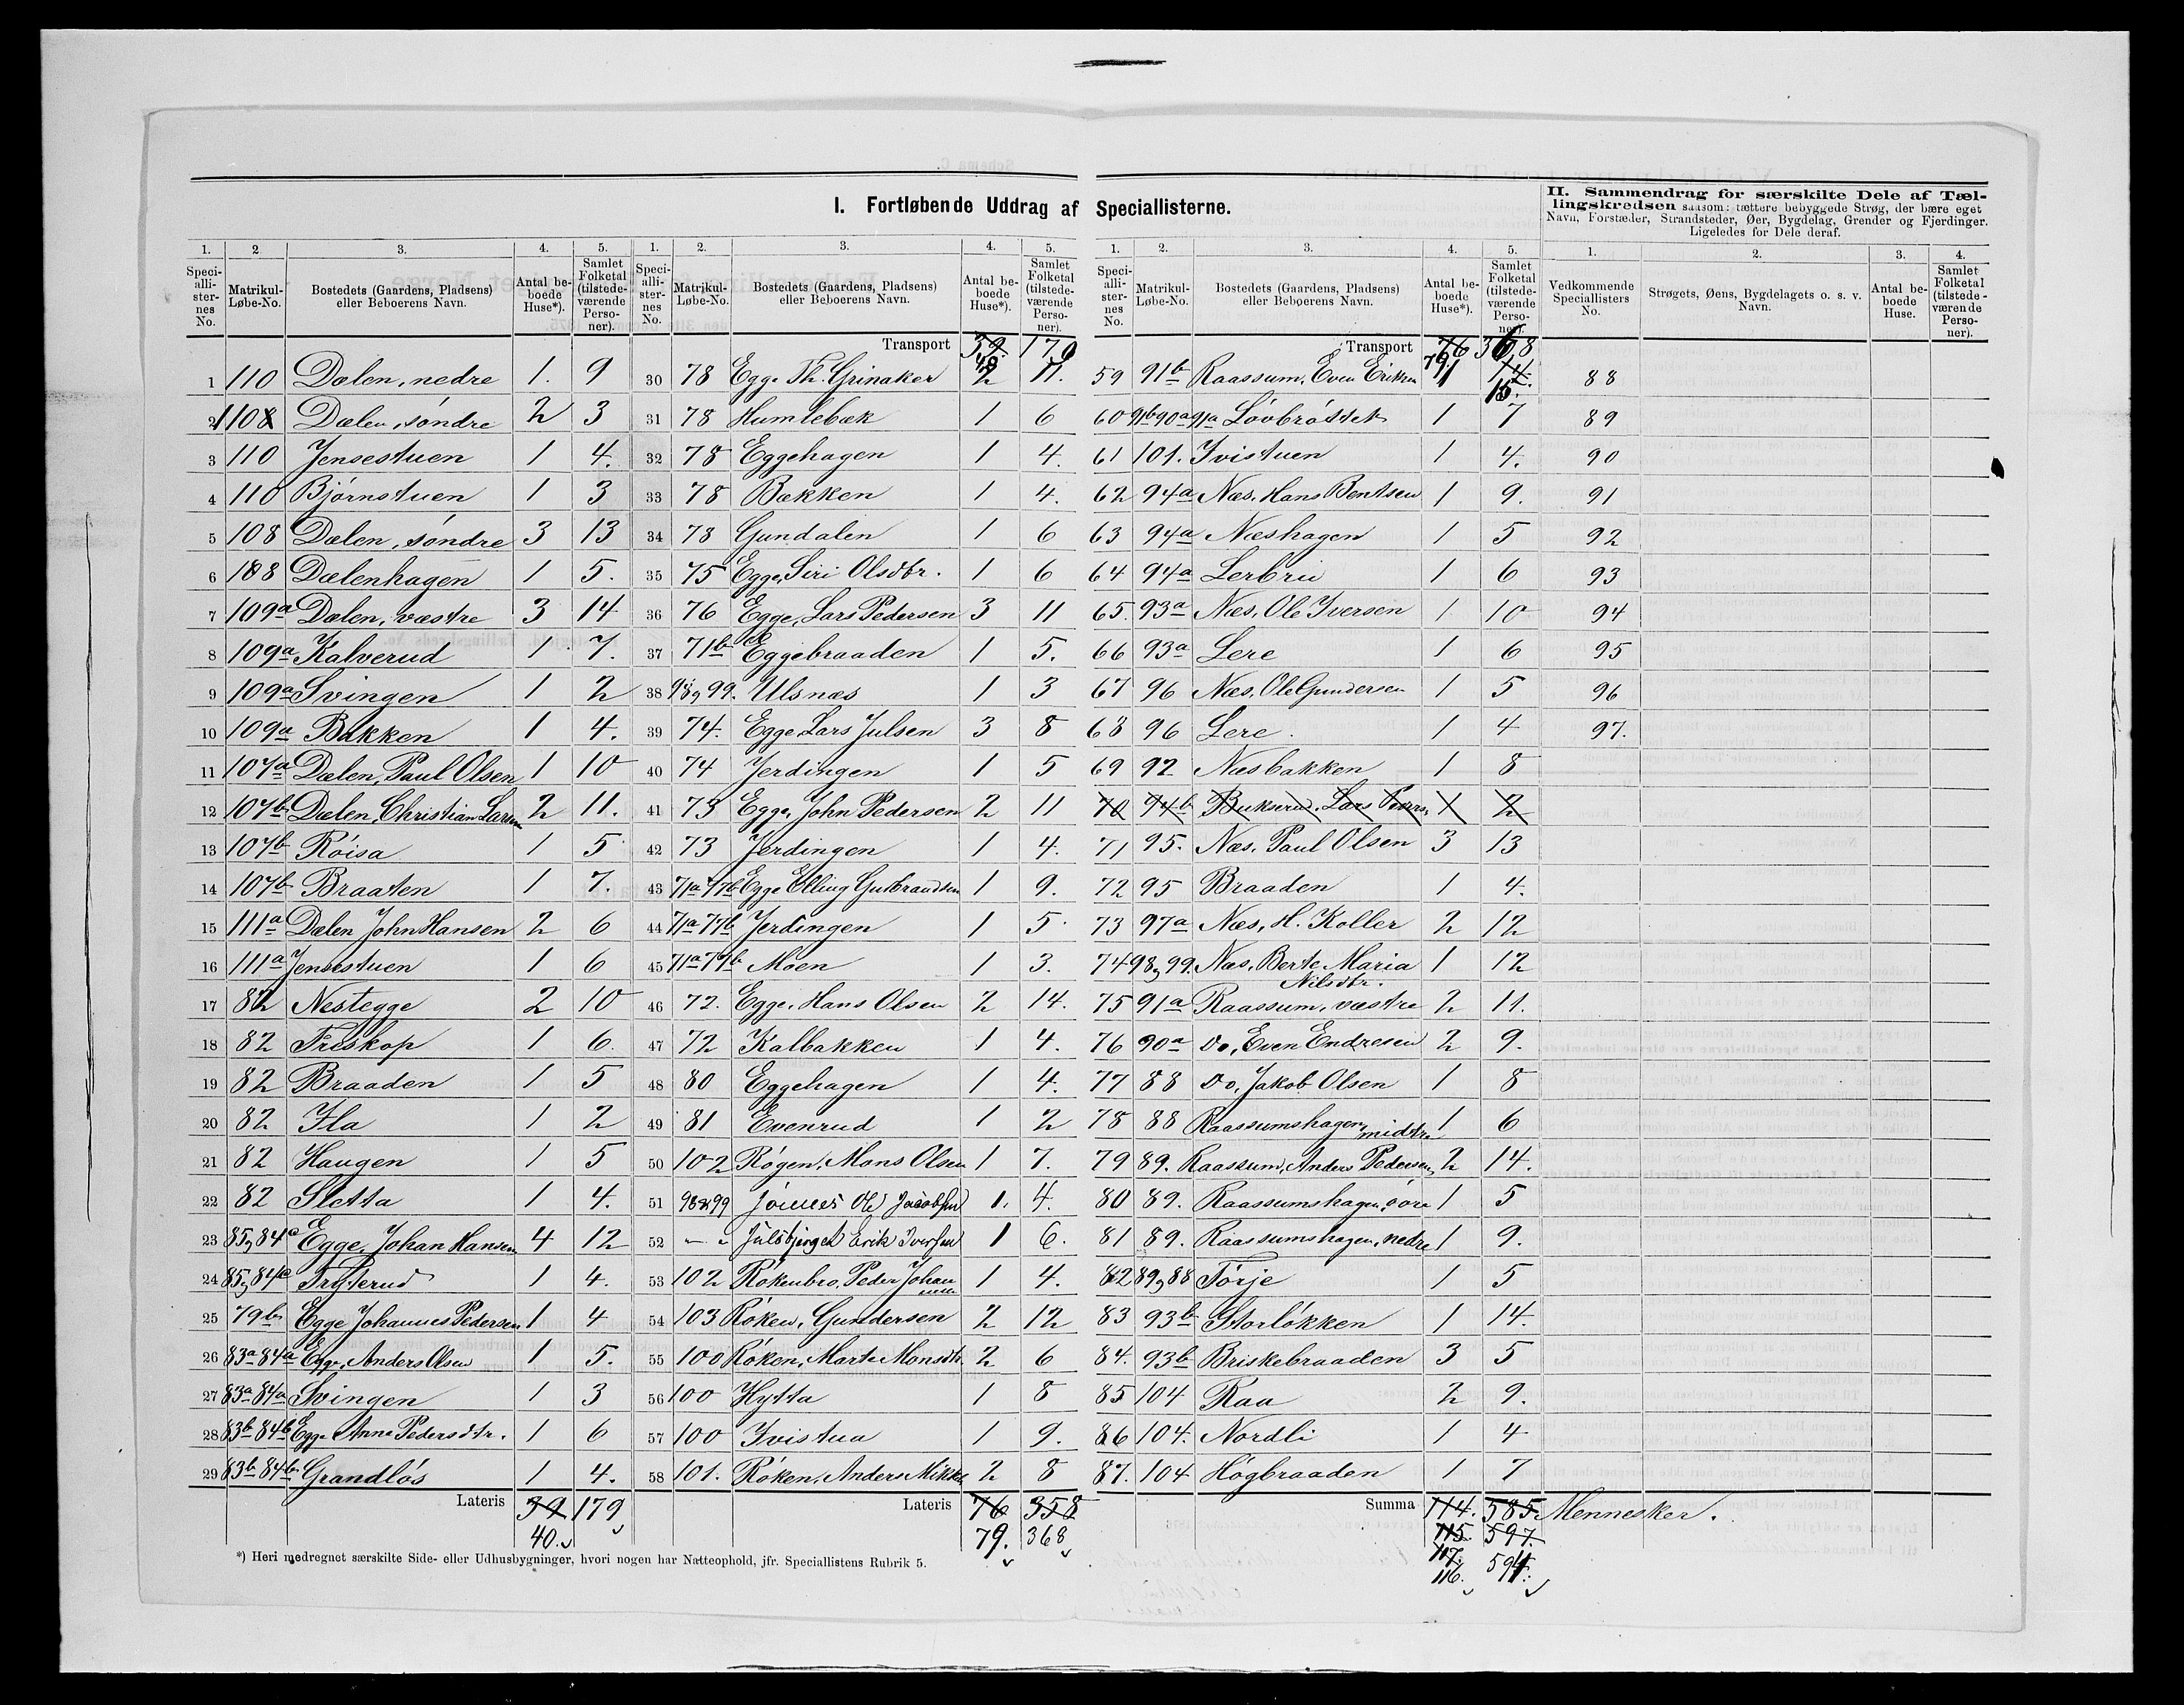 I. Fortløbende Uddrag af Speciallisterne.
II. Sammendrag for særskilte Dele af Tæl-
lingskredsen saasom: tættere bebyggede Strøg, der bære eget
Navn, Forstæder, Strandsteder, Øer, Bygdelag, Grender og Fjerdinger.
Ligeledes for Dele deraf.
1. 2 3. 4. 5.
Speci-alli-ster-nes No. Matrikul-Løbe-No. Bostedets (Gaardens, Pladsens) eller Beboerens Navn. Antal be-boede Huse*). Samlet Folketal (tilstede-værende Perso-ner).
1 110 Dælen, nedre 1. 9
2 110 Dælen, søndre 2 3
3 110 Jensestuen 1 4.
4 110 Bjørnstuen 1 3
5 108 Dælen, søndre 3 13
6 108 Dælenhagen 1 5.
7 109a Dælen, væstre 3 14
8 109a Kalverud 1 7.
9 109a Svingen 1 2
10 109a Bakken 1 4.
11 107a Dælen, Paul Olsen 1 10
12 107b Dælen, Christian Larsen 2 11.
13 107b Röisa 1 5
14 107b Braaten 1 7.
15 111a Dælen John Hansen 2 6
16 111a Jensestuen 1 6
17 82 Nestegge 2 10
18 82 Friskop 1 6.
19 82 Braaden 1 5
20 82 Ila 1 2
21 82 Haugen 1 5
22 82 Sletta 1 4.
23 85, 84c Egge, Johan Hansen 4 12
24 85, 84c Tryterud 1 4.
25 79b Egge Johannes Pedersen 1 4
26 83a 84a Egge, Anders Olsen 1 5.
27 83a 84a Svingen 1 3
28 83b 84b Egge Anne Pedersdtr. 1 6
29 83b 84b Grandlös 1 4.
Lateris 39 179
40.
1. 2. 3. 4. 5.
Speci-alli-ster-nes No. Matrikul-Løbe-No. Bostedets (Gaardens, Pladsens) eller Beboerens Navn. Antal be-boede Huse*). Samlet Folketal (tilstede-værende Perso-ner).
Transport 39. 179
40
30 78 Egge Th. Grinaker 2 11.
31 78 Humlebæk 1 6
32 78 Eggehagen 1 4.
33 78 Bækken 1 4.
34 78 Gundalen 1 6
35 75 Egge, Siri Olsdtr. 1 6
36 76 Egge, Lars Pedersen 3 11
37 71b Eggebraaden 1 5.
38 98, 99. Ulsnæs 1 3
39 74. Egge, Lars Julsen 3 8
40 74 Jerdingen 1 5
41 73 Egge, John Pedersen 2 11
42 73 Jerdingen 1 4.
43 71a 77b Egge Elling Gulbrandsen 1 9.
44 71a 77b Jerdingen 1 5
45 71a 77b Moen 1 3.
46 72. Egge, Hans Olsen 2 14.
47 72 Kalbakken 1 4.
48 80 Eggehagen 1 4.
49 81 Evenrud 1 2
50 102 Røgen, Mons Olsen 1 7.
51 98 & 99 Ole Jacobsen 1. 4.
52 - " Julsbjerget Erik Iversen 1 6.
53 102 Rökenbro, Peder Johan 1 4.
54 103 Röken, Gundersen 2 12
55 100 Röken, Marte Monsdtr. 2 6
56 100 Hytta 1 8
57 100 Ivistua 1 9.
58 101. Röken, Anders Mikke 2 8
Lateris 76 358
79. 368
1. 2. 3. 4. 5.
Speci-alli-ster-nes No. Matrikul-Løbe-No. Bostedets (Gaardens, Pladsens) eller Beboerens Navn. Antal be-boede Huse*). Samlet Folketal (tilstede-værende Perso-ner).
Transport 76 368
79
59 91b Raassum, Even Eriksen 1 14.
15.
60 91b 90a 91a Lövbråttet 1 7
61 101. Ivistuen 1 4.
62 94a Næs, Hans Bentsen 1 9.
63 94a Næshagen 1 5
64 94a Lerbrii 1 6
65. 93a Næs, Ole Iversen 1 10
66 93a Lere 1 6
67 96 Næs, Ole Gundersen 1 5
68 96 Lere. 1 4
69 92 Næsbakken 1 8
70 94b Bukserud, Lars 1 2
71 95. Næs, Paul Olsen 3 13
72 95 Braaden 1 4.
73 97a Næs, H. Koller 2 12
74 98, 99. Næs, Berte Maria 1 12
Nilsdtr.
75 91a Raassum, væstre 2 11.
76 90a Do, Even Endresen 2 9.
77 88 Do, Jakob Olsen 1 8
78 88 Raassumshagen, midtre 1 6
79 89. Raassum, Anders Pedersen 2 14.
80 89. Raassumshagen, øvre 1 5
81 89. Raassumshagen, nedre 1 9.
82 89, 88 Törje 1 5
83 93b Storlökken 1 14.
84. 93b Briskebraaden 3 5
85 104 Raa 2 9.
86 104. Nordli 1 4
87. 104 Högbraaden 1 7
Summa 114. 585 Mennesker.
115 597.
117. 594.
116.
1. 2. 3. 4.
Vedkommende Speciallisters No. Strøgets, Øens, Bygdelagets o. s. v. Navn. Antal be-boede Huse. Samlet Folketal (tilstede-værende Perso-ner).
88
89
90
91
92
93
94
95
96
97.
*) Heri medregnet særskilte Side- eller Udhusbygninger, hvori nogen har Natteophold, jfr. Speciallistens Rubrik 5.